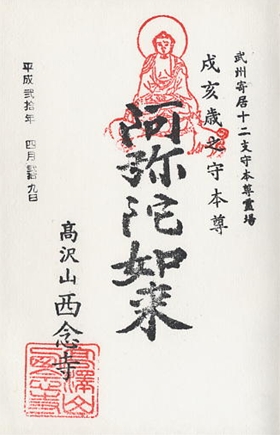 武州寄居十二支守本尊霊場
戌亥歳之守本尊
阿弥陀如来
高沢山西念寺
平成弐拾年 四月弐拾九日